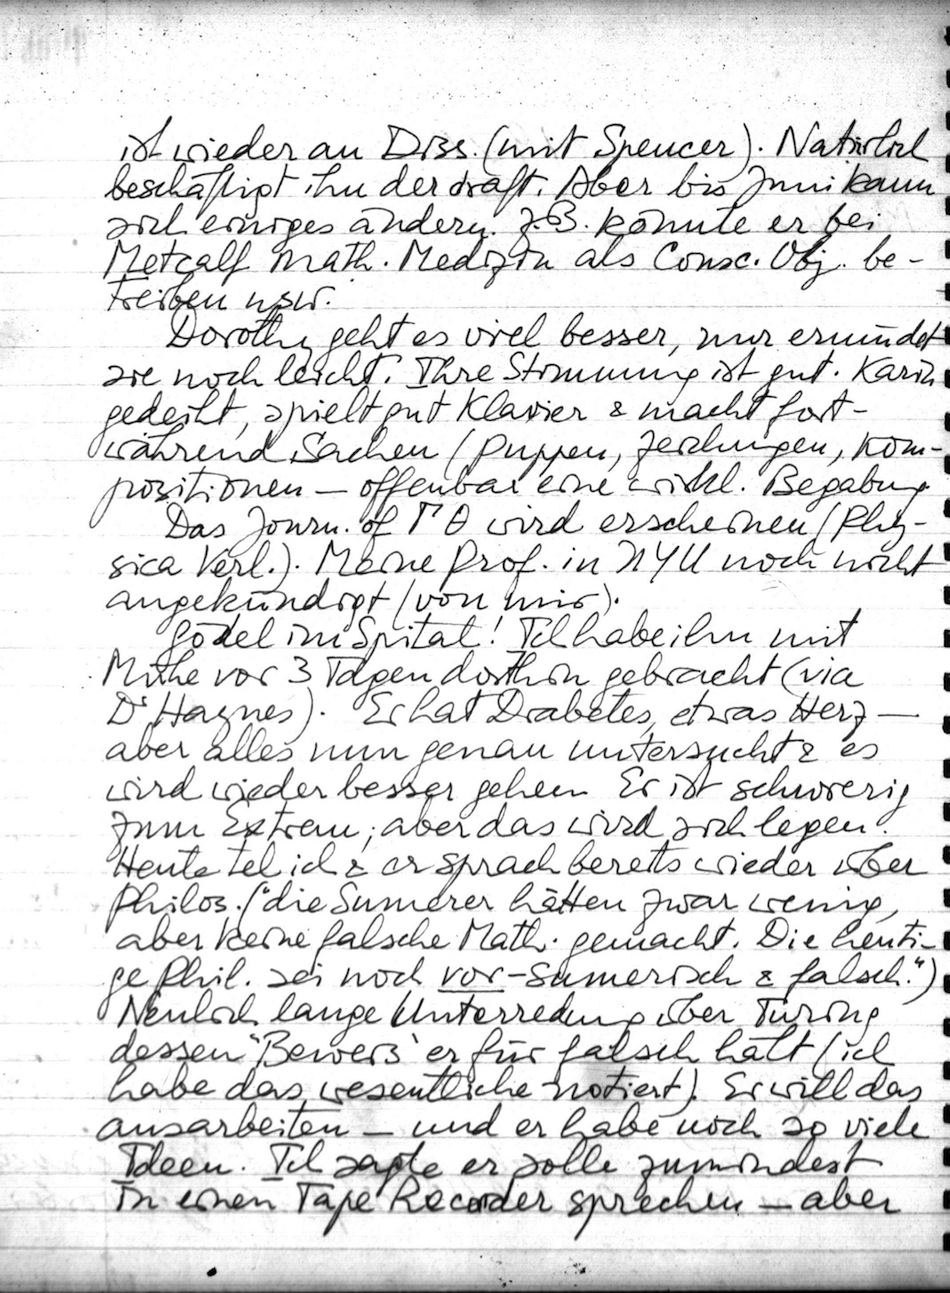 ist wieder an Diss. (mit Spencer). Natürlich
beschäftigt ihn der draft. Aber bis Juni kann
sich einiges ändern. Z.B. könnte er bei
Metcalf math. Medizin als Consc. Obj. be-
treiben usw.
Dorothy geht es viel besser, nur ermüdet
sie noch leicht. Ihre Stimmung ist gut. Karin
gedeiht, spielt gut Klavier & macht fort-
während Sachen (Puppen, Zeichnungen, Kom-
positionen – offenbar eine wirkl. Begabung
Das Journ. of Γ Θ wird erscheinen (Phy-
sica Verl.). Meine Prof. in NYU noch nicht
angekündigt (von mir).
Gödel im Spital! Ich habe ihn mit
Mühe vor 3 Tagen dorthin gebracht (via
Dr Haynes). Er hat Diabetes, etwas Herz –
aber alles nun genau untersucht & es
wird wieder besser gehen. Er ist schwierig
zum Extrem, aber das wird sich legen.
Heute tel ich & er sprach bereits wieder über
Philos. ("die Sumerer hätten zwar wenig,
aber keine falsche Math. gemacht. Die heuti-
ge Phil. sei noch vor-Sumerisch & falsch.")
Neulich lange Unterredung über Turing
dessen "Beweis" er für falsch hält (ich
habe das wesentliche notiert). Er will das
ausarbeiten – und er habe noch so viele
Ideen. Ich sagte er solle zumindest
in einen Tape Recorder sprechen – aber